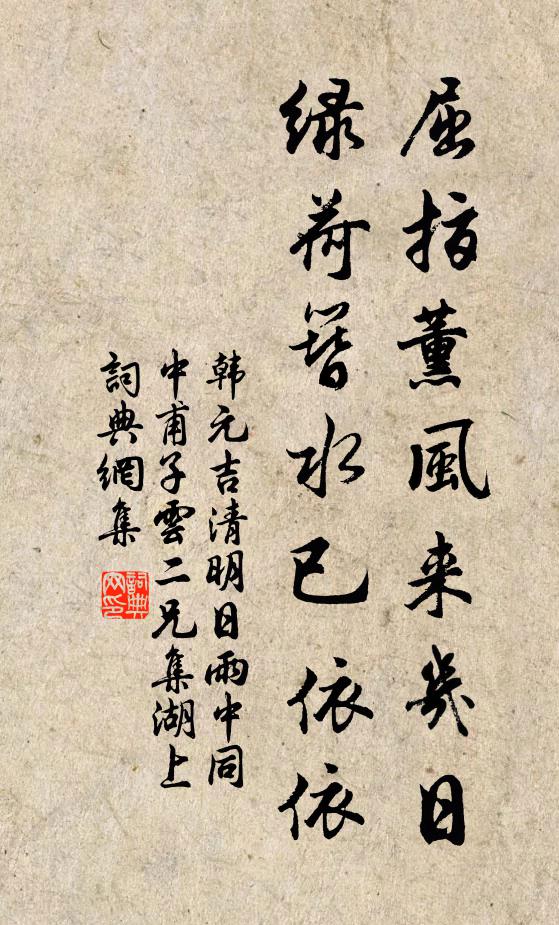 屈指薰風来幾日
綠荷簪水已依依
韩元吉清明日雨中同
中甫子雲二兄集湖上
詞典網集
詞典網印